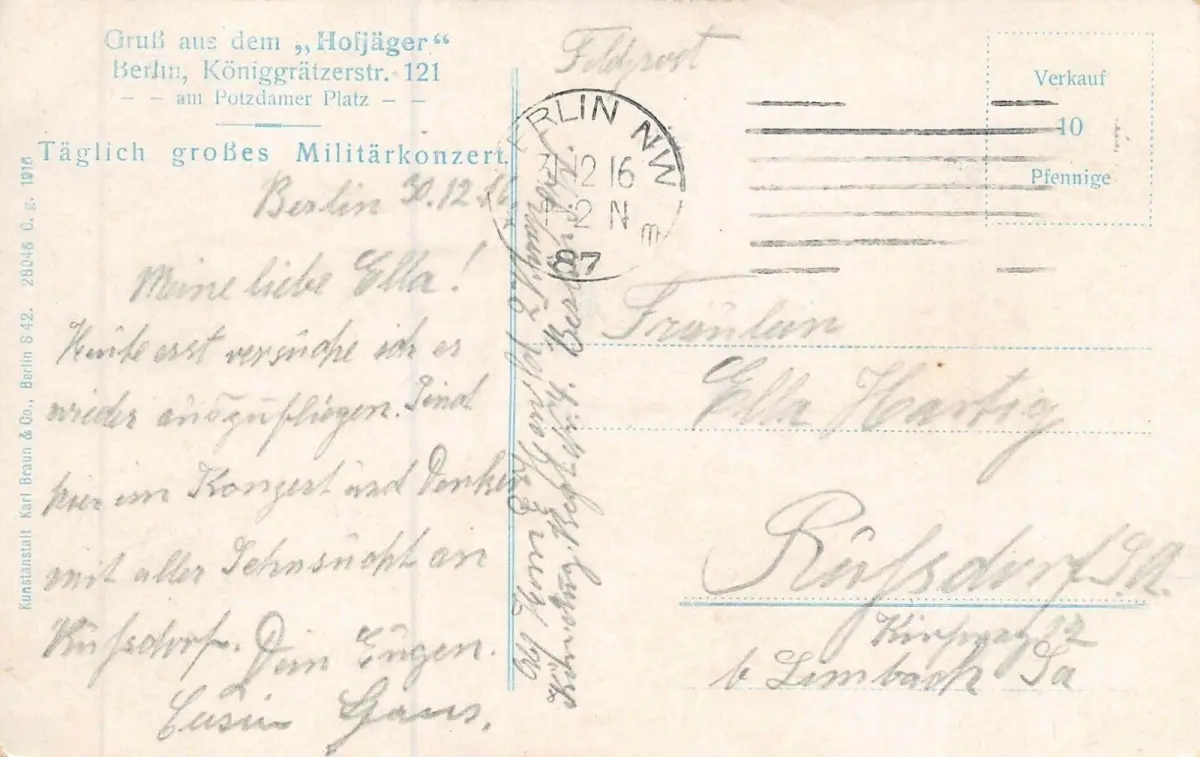 Gruß aus dem „Hofjäger“
Berlin, Königgrätzerstr. 121
– – am Potzdamer Platz – –
Täglich großes Militärkonzert.
Kunstanstalt Karl Braun & Co., Berlin S 42. 28046 O. g. 1916
Berlin 30.12.
Meine liebe Ella!
versuche ich es
wieder auszufliegen. Sind
hier im Konzert und Denken
mit alle Sehnsucht an
Rußdorf. Dein Eugen.
Hans.
Feldpost
BERLIN NW
31.12 16
12 N
m
87
Verkauf
10
Pfennige
Fräulein
Ella Hartig
Rußdorf S.A.
b Limbach Sa
Berlin